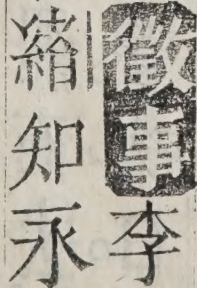 徵事李
緒知永